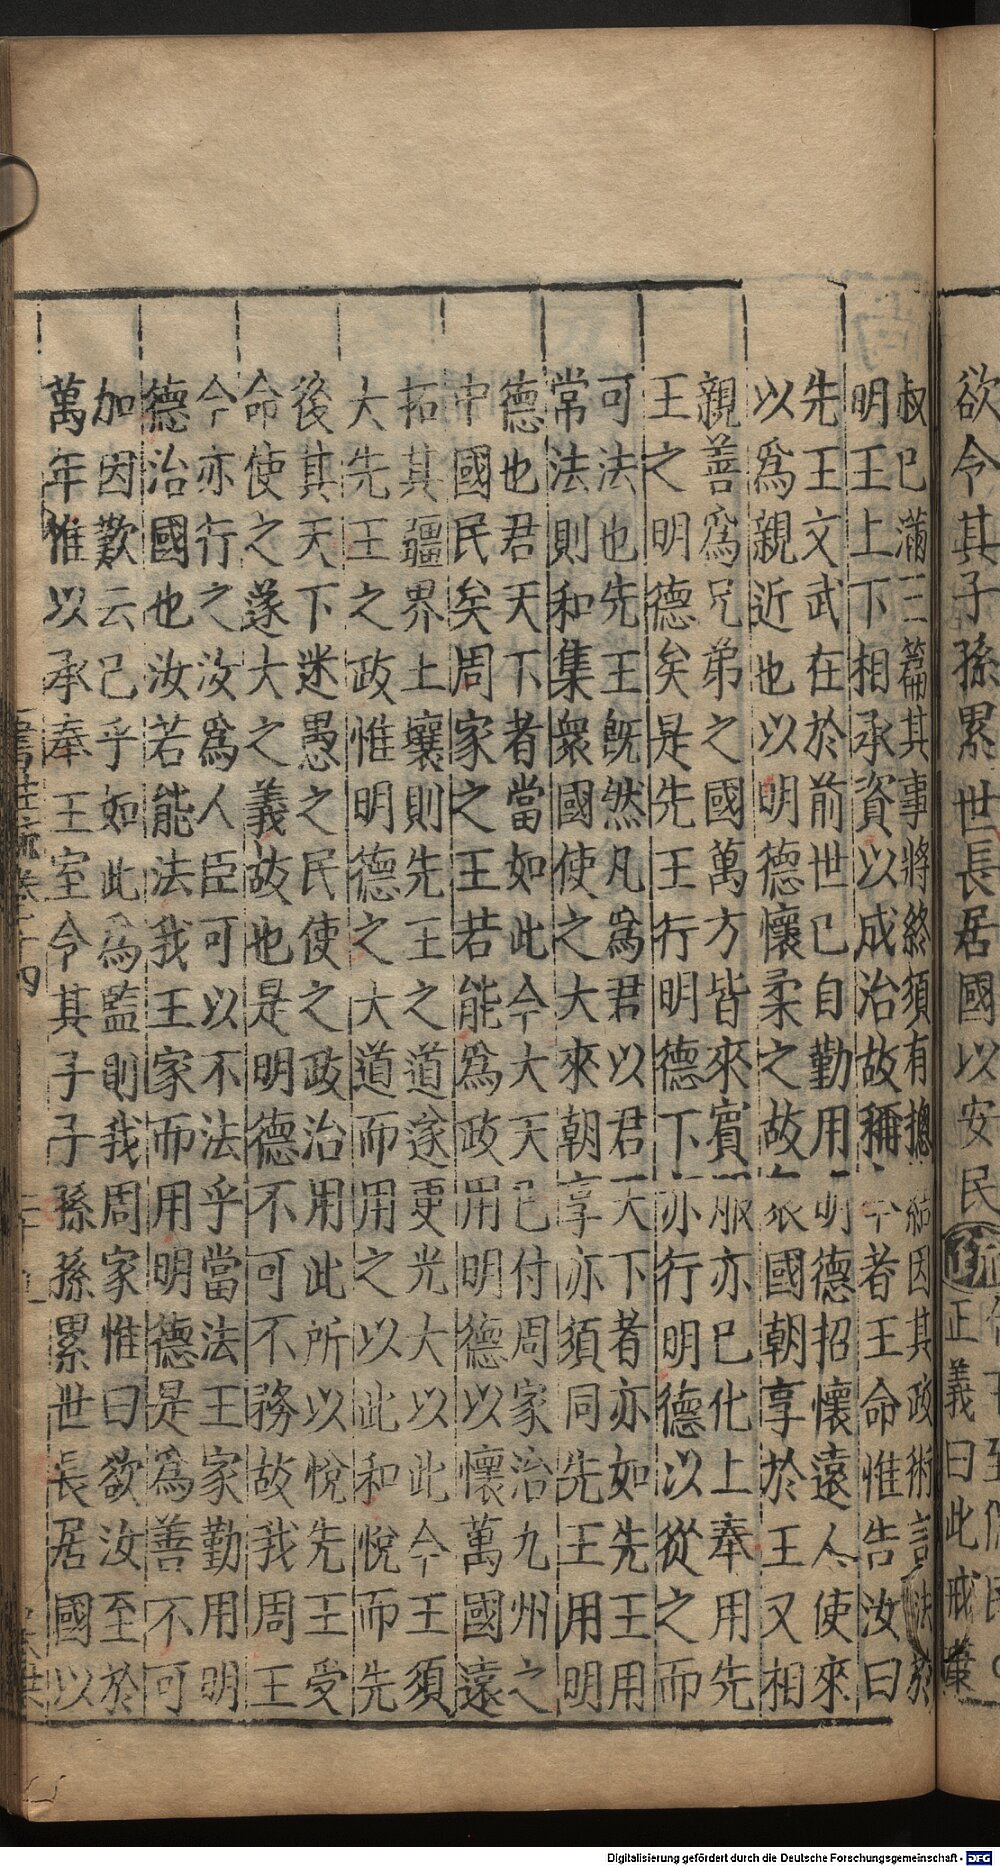 欲令其子孫累世長居國以安民疏
正義曰此戒
叔已滿三篇其事將終須有摠結因其政術言法於
明王上下相承資以成治故稱今者王命惟告汝曰
先王文武在於前世已自勤用明德招懷遠人使來
以爲親近也以明德懷柔之故衆國朝享於王又相
親善爲兄弟之國萬方皆來賓服亦已化上奉用先
王之明德矣是先王行明德下亦行明德以從之而
可法也先王既然凡爲君以君天下者亦如先王用
常法則和集衆國使之大來朝享亦須同先王用明
德也君天下者當如此今大天已付周家治九州之
中國民矣周家之王若能爲政用明德以懷萬國遠
拓其疆界土壤則先王之道遂更光大以此今王須
大先王之政惟明德之大道而用之以此和悅而先
後其天下迷愚之民使之政治用此所以悅先王受
命使之遂大之義故也是明德不可不務故我周王
今亦行之汝爲人臣可以不法乎當法王家勤用明
德治國也汝若能法我王家而用明德是爲善不可
加因歎云己乎如此爲監則我周家惟曰欲汝至於
萬年惟以承奉王室令其子子孫孫累世長居國以
書註疏卷十四
Digitalisierung gefördert durch die Deutsche Forschungsgemeinschaft - DFG